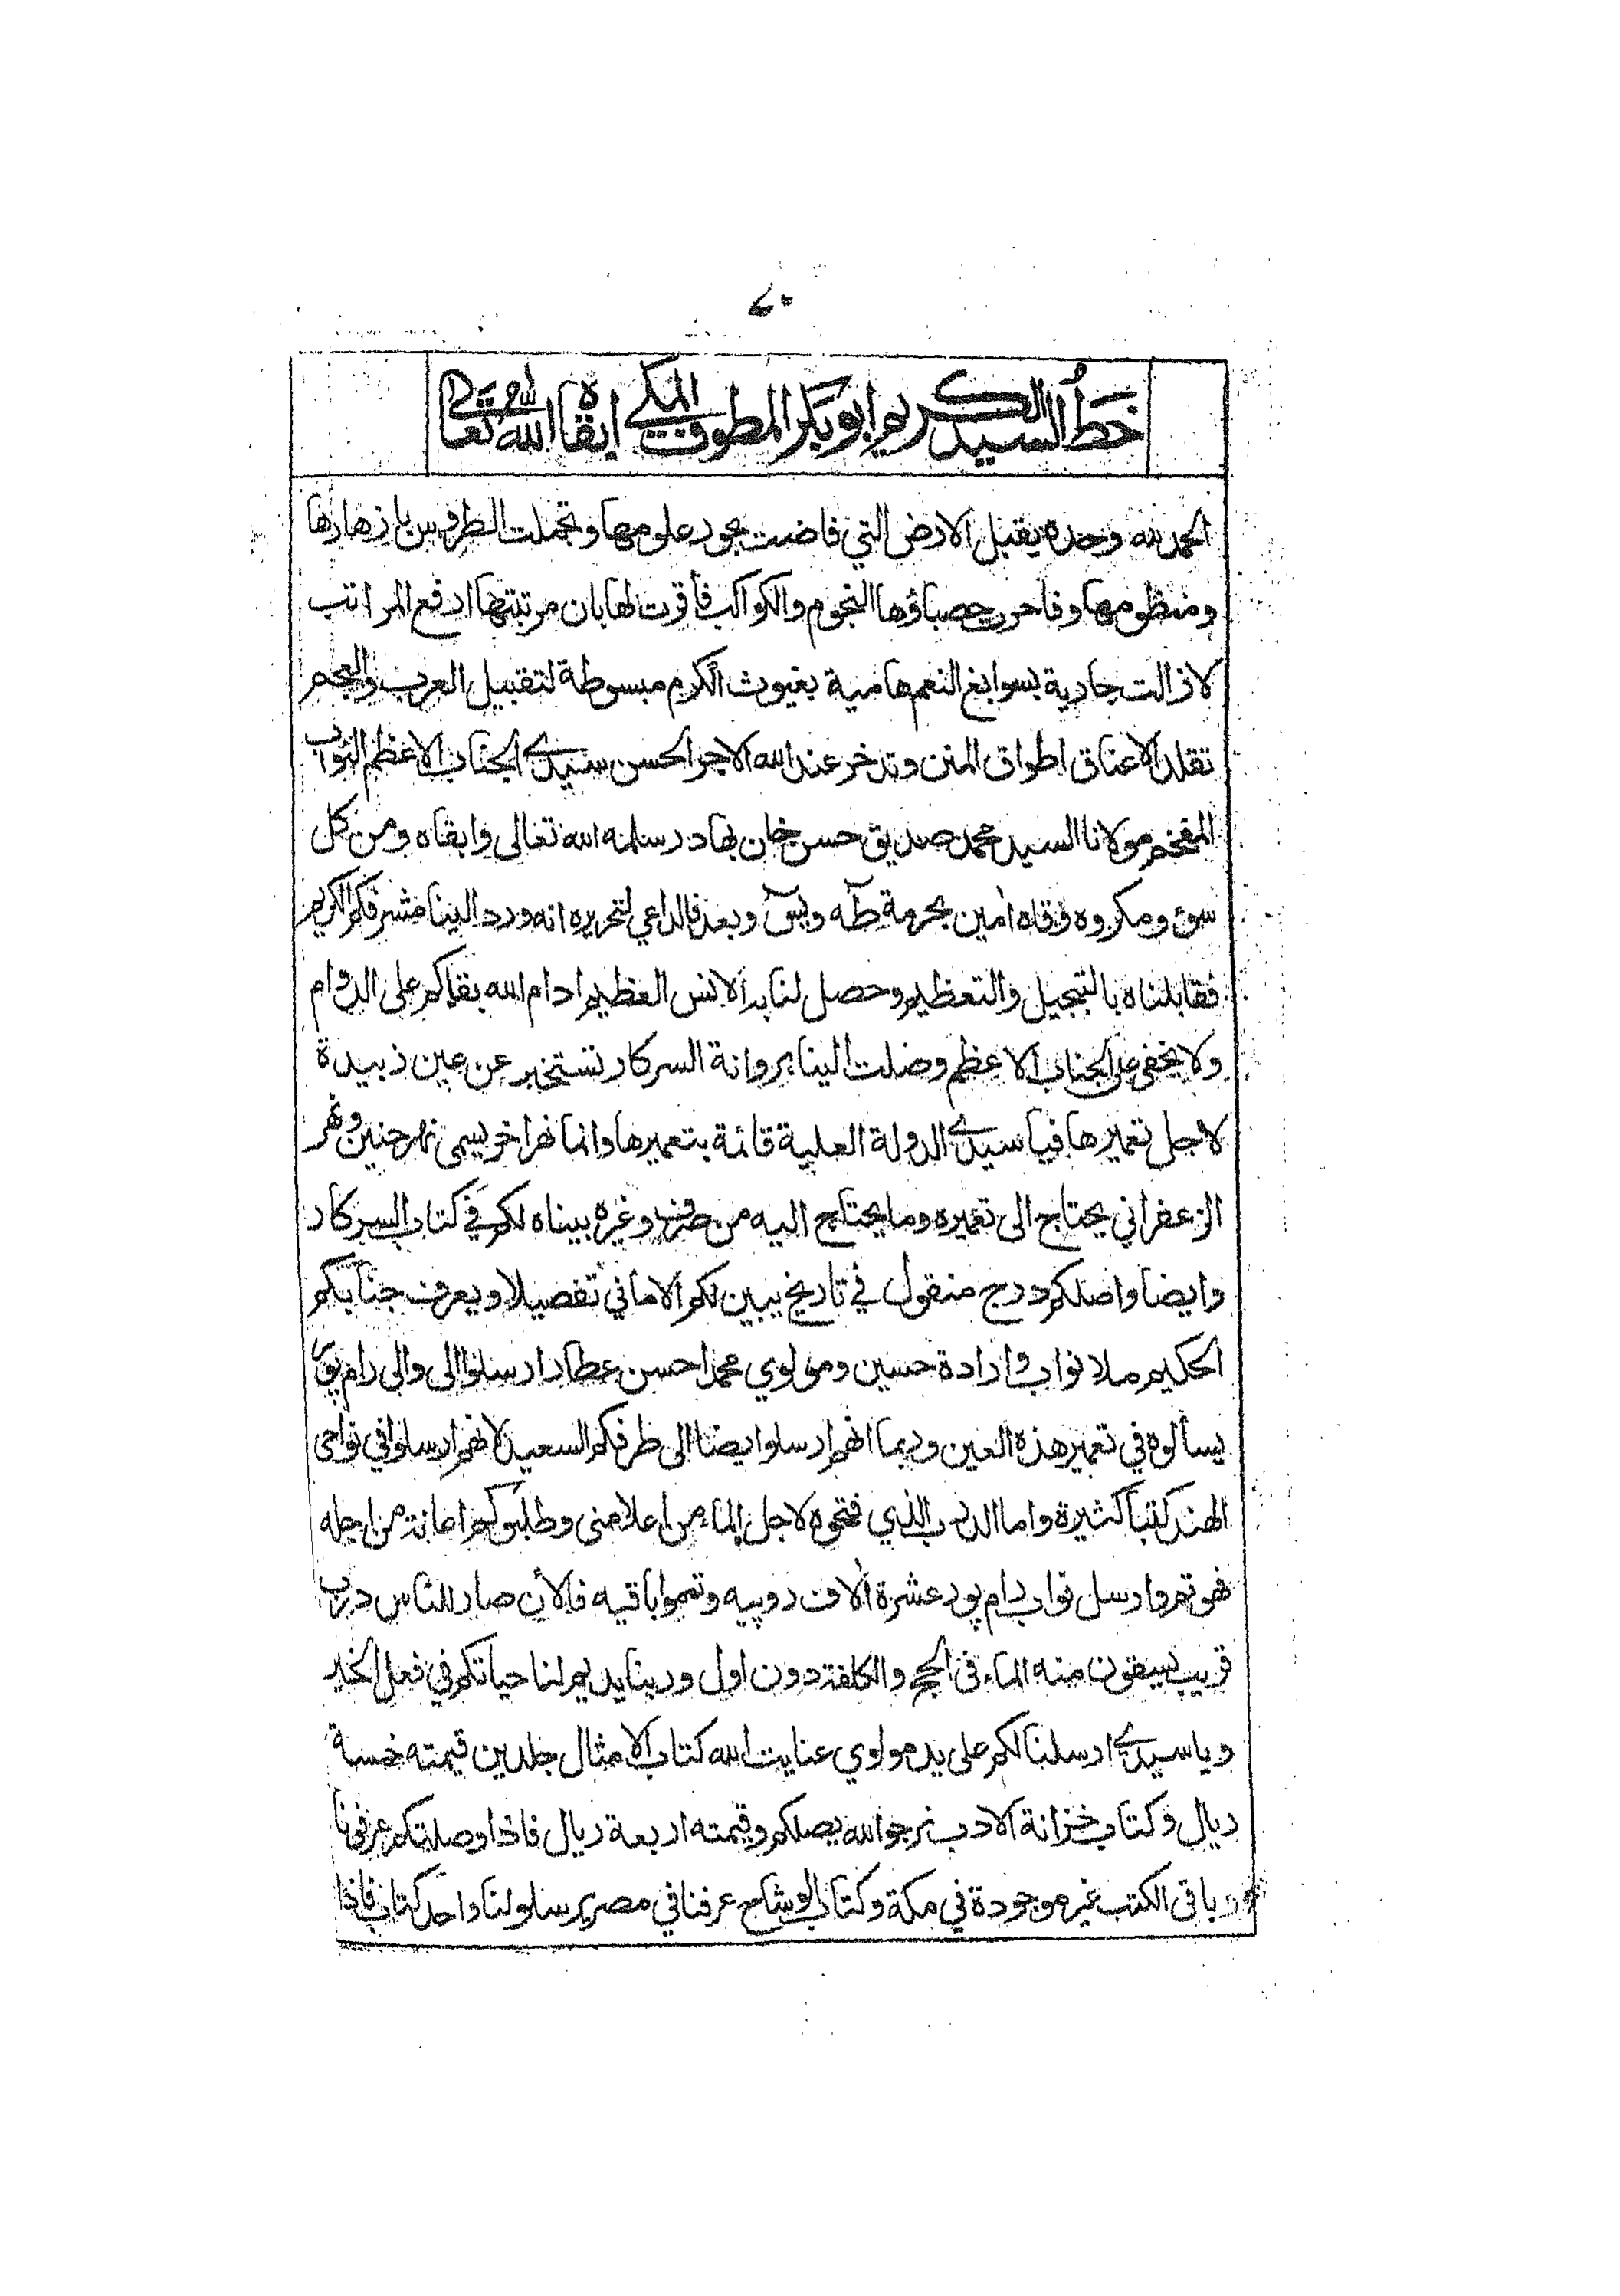 ٧٠
خط السيد الكريم ابو بكر المطوف المكي ابقاه الله تعالى
الحمد لله وحده يقبل الارض التي فاضت بحور علومها وتجملت الطروس بازهارها
ومنظومها وفاخرت حصباؤها النجوم والكواكب فأقرت لها بان مرتبتها ارفع المراتب
لازالت جارية بسوابغ النعم هامية بغيوث الكرم مبسوطة لتقبيل العرب والعجم
تقلد الاعناق اطواق المنن وتدخر عند الله الاجر الحسن سيدي الجناب الاعظم النواب
المفخم مولانا السيد محمد صديق حسن خان بهادر سلمه الله تعالى وابقاه ومن كل
سوء ومكروه وقاه امين بحرمة طه ويس وبعد فالداعي لتحريره انه ورد الينا مشرفكم الكريم
فقابلناه بالتبجيل والتعظيم وحصل لنا به الانس العظيم ادام الله بقاكم على الدوام
ولا يخفى على الجناب الاعظم وصلت الينا بروانة السركار تستخبر عن عين زبيدة
لاجل تعميرها فيا سيدي الدولة العلية قائمة بتعميرها وانما نهرا خر يسمى نهر حنين ونهر
الزعفراني يحتاج الى تعميره وما يحتاج اليه من صرف وغيره بيناه لكم في كتاب السركار
وايضا واصلكم درج منقول في تاريخ يبين لكم الاماني تفصيلا ويعرف جنابكم
الحكيم ملا نواب وارادة حسين ومولوي محمد احسن عطار ارسلوا الى والى رام پور
يسألوه في تعمير هذه العين وربما انهم ارسلوا ايضا الى طرفكم السعيد لانهم ارسلوا في نواحى
الهند كتبا كثيرة واما الدرب الذي فتحوه لاجل الماء من اعلا منى وطلبوكم اعانة من اجله
فهو تم وارسل نواب رام پور عشرة الاف روپيه وتمموا باقيه فالأن صار للناس درب
قريب يسقون منه الماء فى الحج والكلفة دون اول وربنا يديم لنا حياتكم في فعل الخير
ويا سيدي ارسلنا لكم على يد مولوي عنايت الله كتاب الامثال جلدين قيمته خمسة
ريال وكتاب خزانة الادب نرجو الله يصلكم وقيمته اربعة ريال فاذا وصلتكم عرفونا
وباقى الكتب غير موجودة في مكة وكتاب الوشاح عرفنا في مصر يرسلو لنا واحد كتاب فاذا